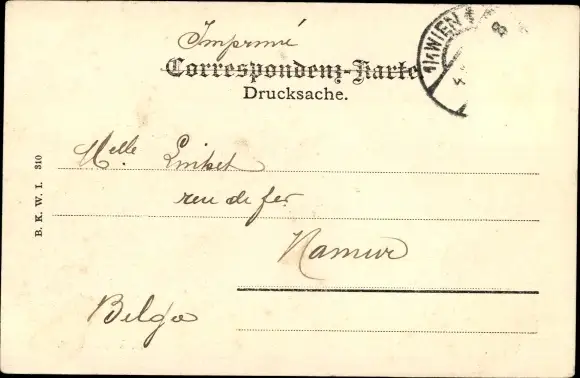 Imprimé
Correspondenz-Karte
Drucksache.
1/1 WIEN 1
8
4
Melle. Linket
rue de fer
Namur
Belge
B. K. W. I. 310